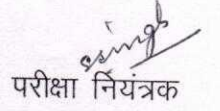 ssingh
परीक्षा नियंत्रक